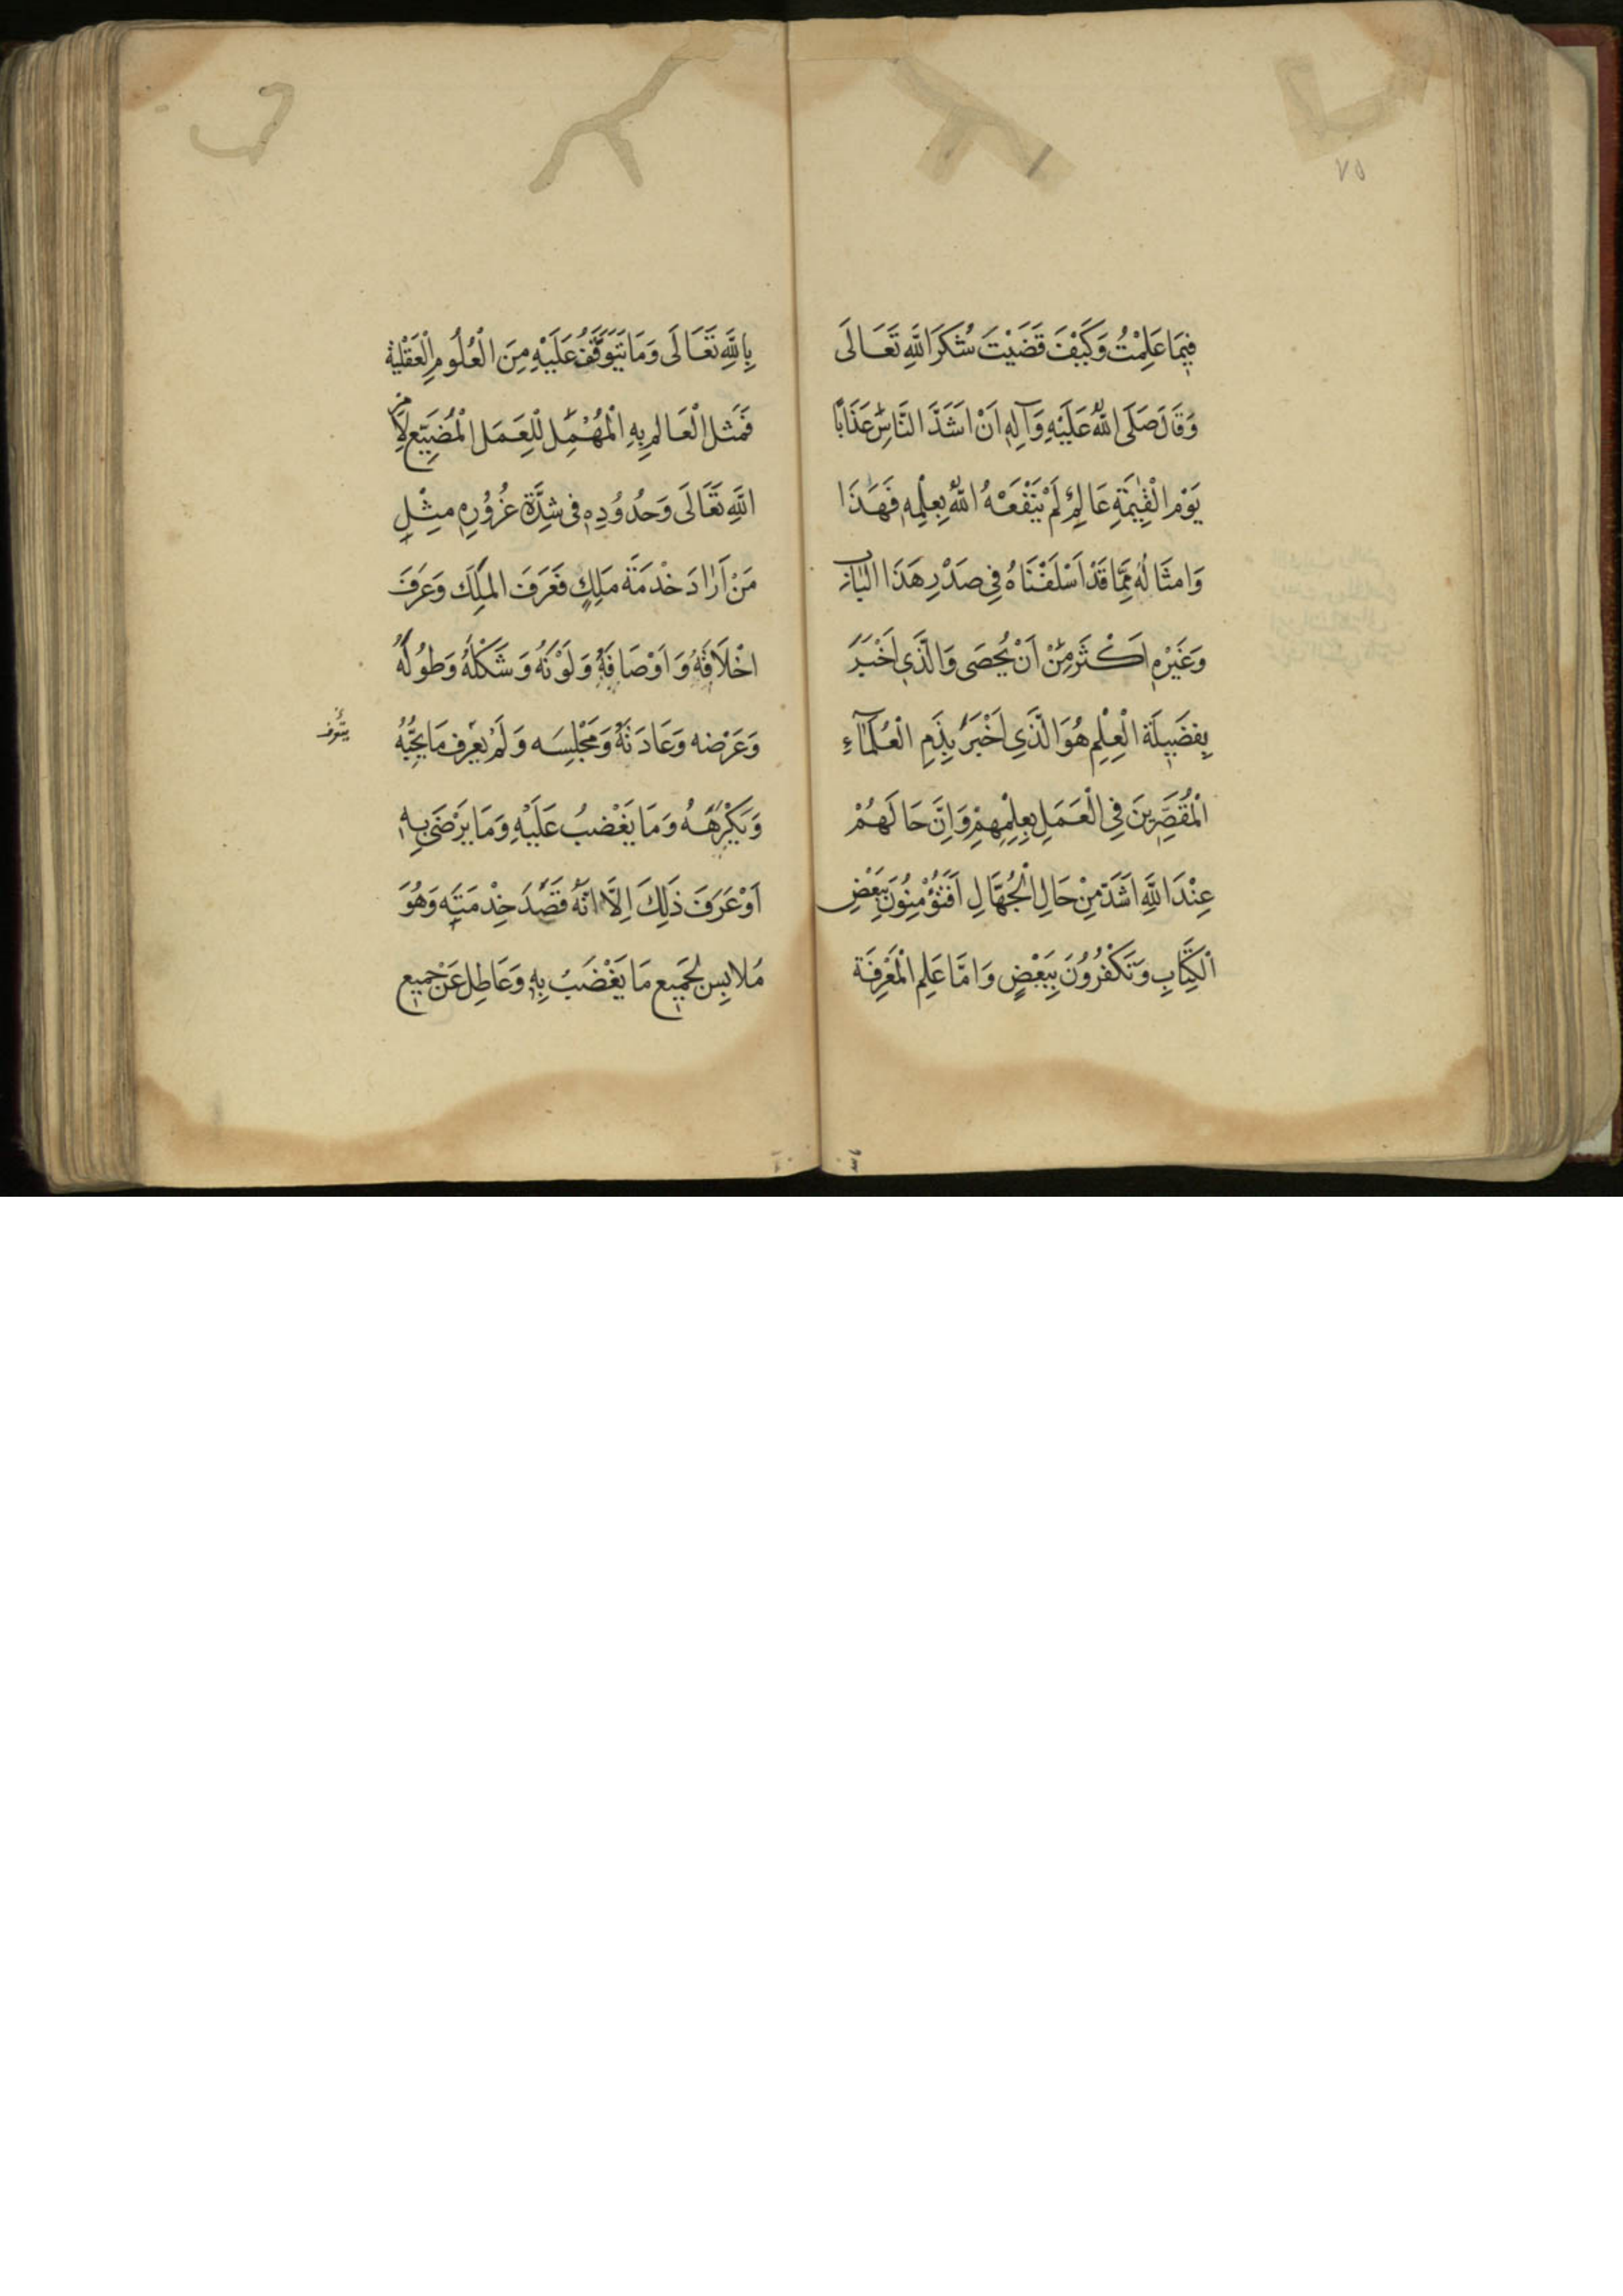 ٧٥
فِيمَا عَلِمْتُ وَكَيْفَ قَضَيْتَ شُكْرَ اللَّهِ تَعَالَى
وَقَالَ صَلَّى اللَّهُ عَلَيْهِ وَآلِهِ اَنْ اَشَدَّ النَّاسِ عَذَابًا
يَوْمَ الْقِيٰمَةِ عَالِمٌ لَمْ يَنْفَعْهُ اللَّهُ بِعِلْمِهِ فَهَذَا
وَامثَالُهُ مِمَّا قَدْ اَسْلَفْنَاهُ فِى صَدْرِ هَذَا البَابِ
وَغَيْرِهِ اَكْثَرَ مِنْ اَنْ يُحصَى وَالَّذَى اَخْبَرَ
بِفضَيِلَة الْعِلْمِ هُوَ الَّذَى اَخْبَرَ بِذَمِ الْعُلَمَآءِ
الْمُقَصِّرِينَ فِى الْعَمَلِ بِعِلْمِهِمْ وَاِنَّ حَالَهُمْ
عِنْدَ اللَّهِ اَشَدّ مِنْ حَالِ الْجُهَّالِ اَفَتُؤْمِنُونَ بِبَعْضِ
الْكِتَابِ وَتَكْفُرُوُنَ بِبَعْضٍ وَامَّا عَلِم الْمَعْرِفَة
بِاللَّهِ تَعَالَى وَمَا يَتَوَقَّفُ عَلَيْهِ مِنَ الْعُلُومِ الْعَقْلِيَّة
فَمَثل الْعَالِم بِهِ الْمُهْمِل لِلْعَمَل الْمُضَيِّع لِاَمْرِ
اللَّهِ تَعَالَى وَحُدُوُدِهِ فى شِدَّة غُرُوُرِهِ مثِلِ
مَنْ اَرَادَ خدْمَةَ مَلِكٍ فَعَرَفَ المَلِكَ وَعَرَفَ
اخْلَاقَهُ وَاَوْصَافَهُ وَلَوْنَهُ وَشَكْلَهُ وَطُولَهُ
وَعَرْضه وَعَادَتَهُ وَمَجْلِسَه وَلَمْ يَعْرِف مَا يُحِبُّهُ
وَيَكْرَهُهُ وَمَا يَغْضبُ عَلَيْهِ وَمَا يَرْضَى بِهِ
اَوْ عَرَفَ ذَلِكَ اِلَّا انَّهُ قَصَدَ خِدْمَتَه وَهُوَ
مُلابِس لِجَمِيع مَا يَغْضَبُ بِهِ وَعَاطِل عَنْ جَمِيع